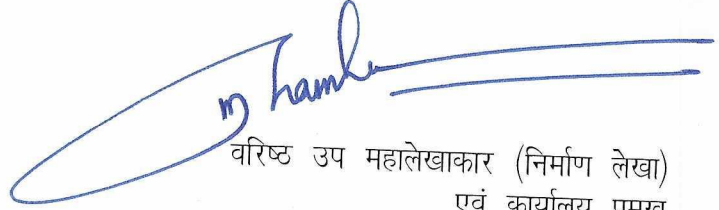 वरिष्ठ उप महालेखाकार (निर्माण लेखा)
एवं कार्यालय प्रमुख